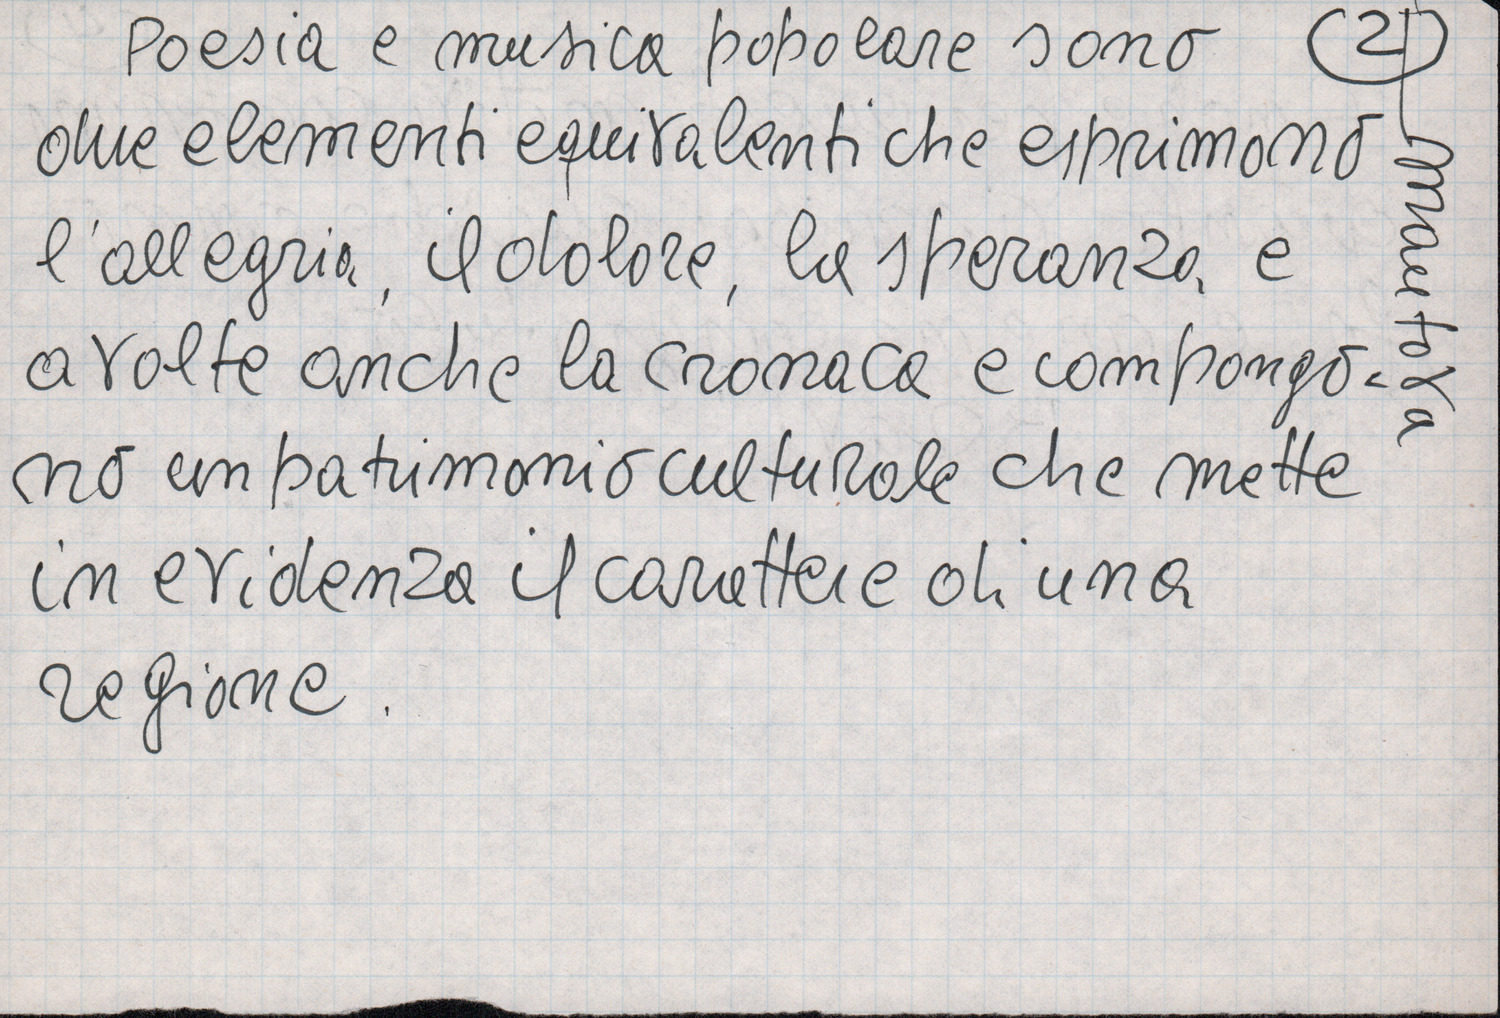 Poesia e musica popolare sono
due elementi equivalenti che esprimono
l'allegria, il dolore, la speranza e
a volte anche la cronaca e compongo-
no un patrimonio culturale che mette
in evidenza il carattere di una
regione.
2
Mantova